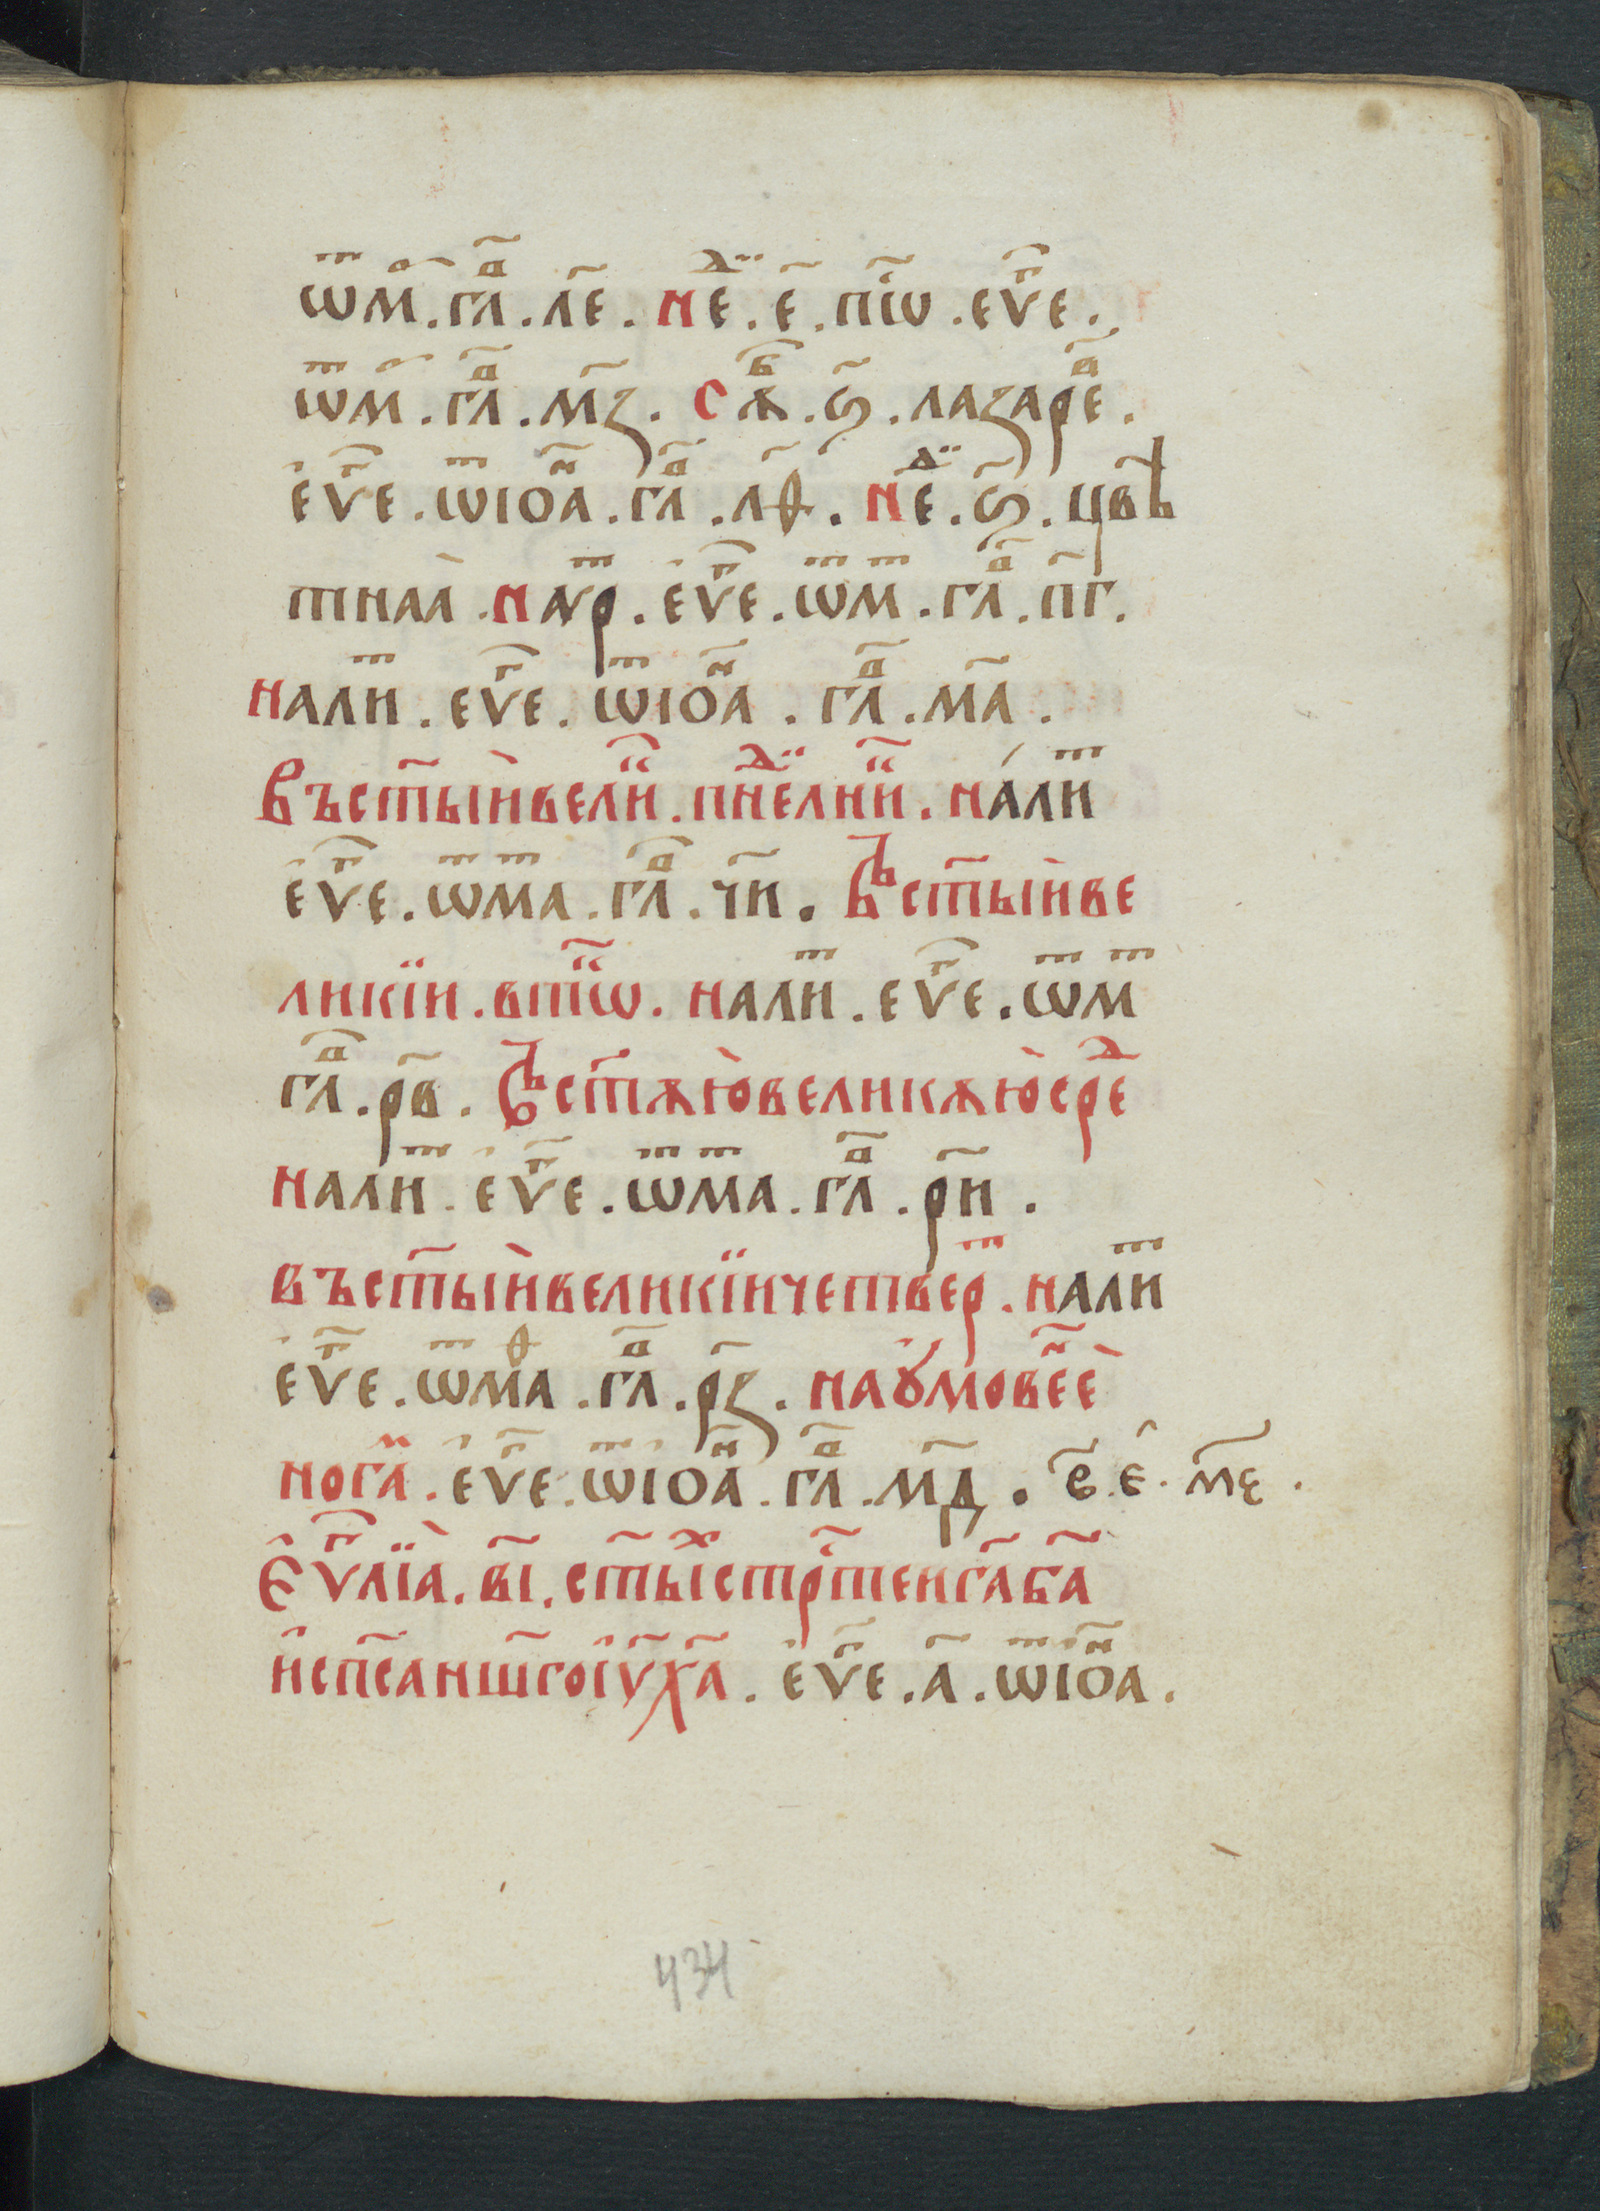 ѿмⷬ҇ . глⷡ҇ . л҃е . неⷣ . е҃ . пⷭ҇іѡ . еѵⷢ҇е .
ѿмⷬ҇ . глⷡ҇ . м҃з . сѫⷠ҇ . ѕ҃ . лазареⷡ҇ .
еѵⷢ҇е . ѿіоаⷩ҇ . глⷡ҇ . л҃ѳ . неⷣ . ѕ҃ . цвѣ
тнаа . наѵⷮр . еѵⷢ҇е . ѿмⷮ . глⷡ҇ . п҃г .
налиⷮ . еѵⷢ҇е . ѿіоаⷩ҇ . глⷡ҇ . м҃а .
въст҃ыивелиⷦ҇ . пнⷣелниⷦ҇ . налиⷮ
еѵⷢ҇е . ѿмⷮа . глⷡ҇ . ч҃и . въст҃ыиве
ликїи . втѡⷬ҇ . налиⷮ . еѵⷢ҇е . ѿмⷮ
глⷡ҇ . р҃в . въст҃ѫювеликѫюсреⷣ
налиⷮ . еѵⷢ҇е . ѿмⷮа . глⷡ҇ . р҃и .
въст҃ыивеликїичетвеⷬ҇рⷮ . налиⷮ
еѵⷢ҇е . ѿмаⷴ . глⷡ҇ . р҃з . наꙋмовеⷩ҇е
ногаⷨ . еѵⷢ҇е . ѿіоаⷩ҇ . глⷡ҇ . м҃д . в҃ . е . м҃є .
Еѵⷢ҇лїа . в҃і . ст҃ыⷯстрⷭ҇теиг҃аб҃а
исп҃санш҃гоіѵ҃х҃а . еѵⷢ҇е . а҃ . ѿіоаⷩ҇ .
434